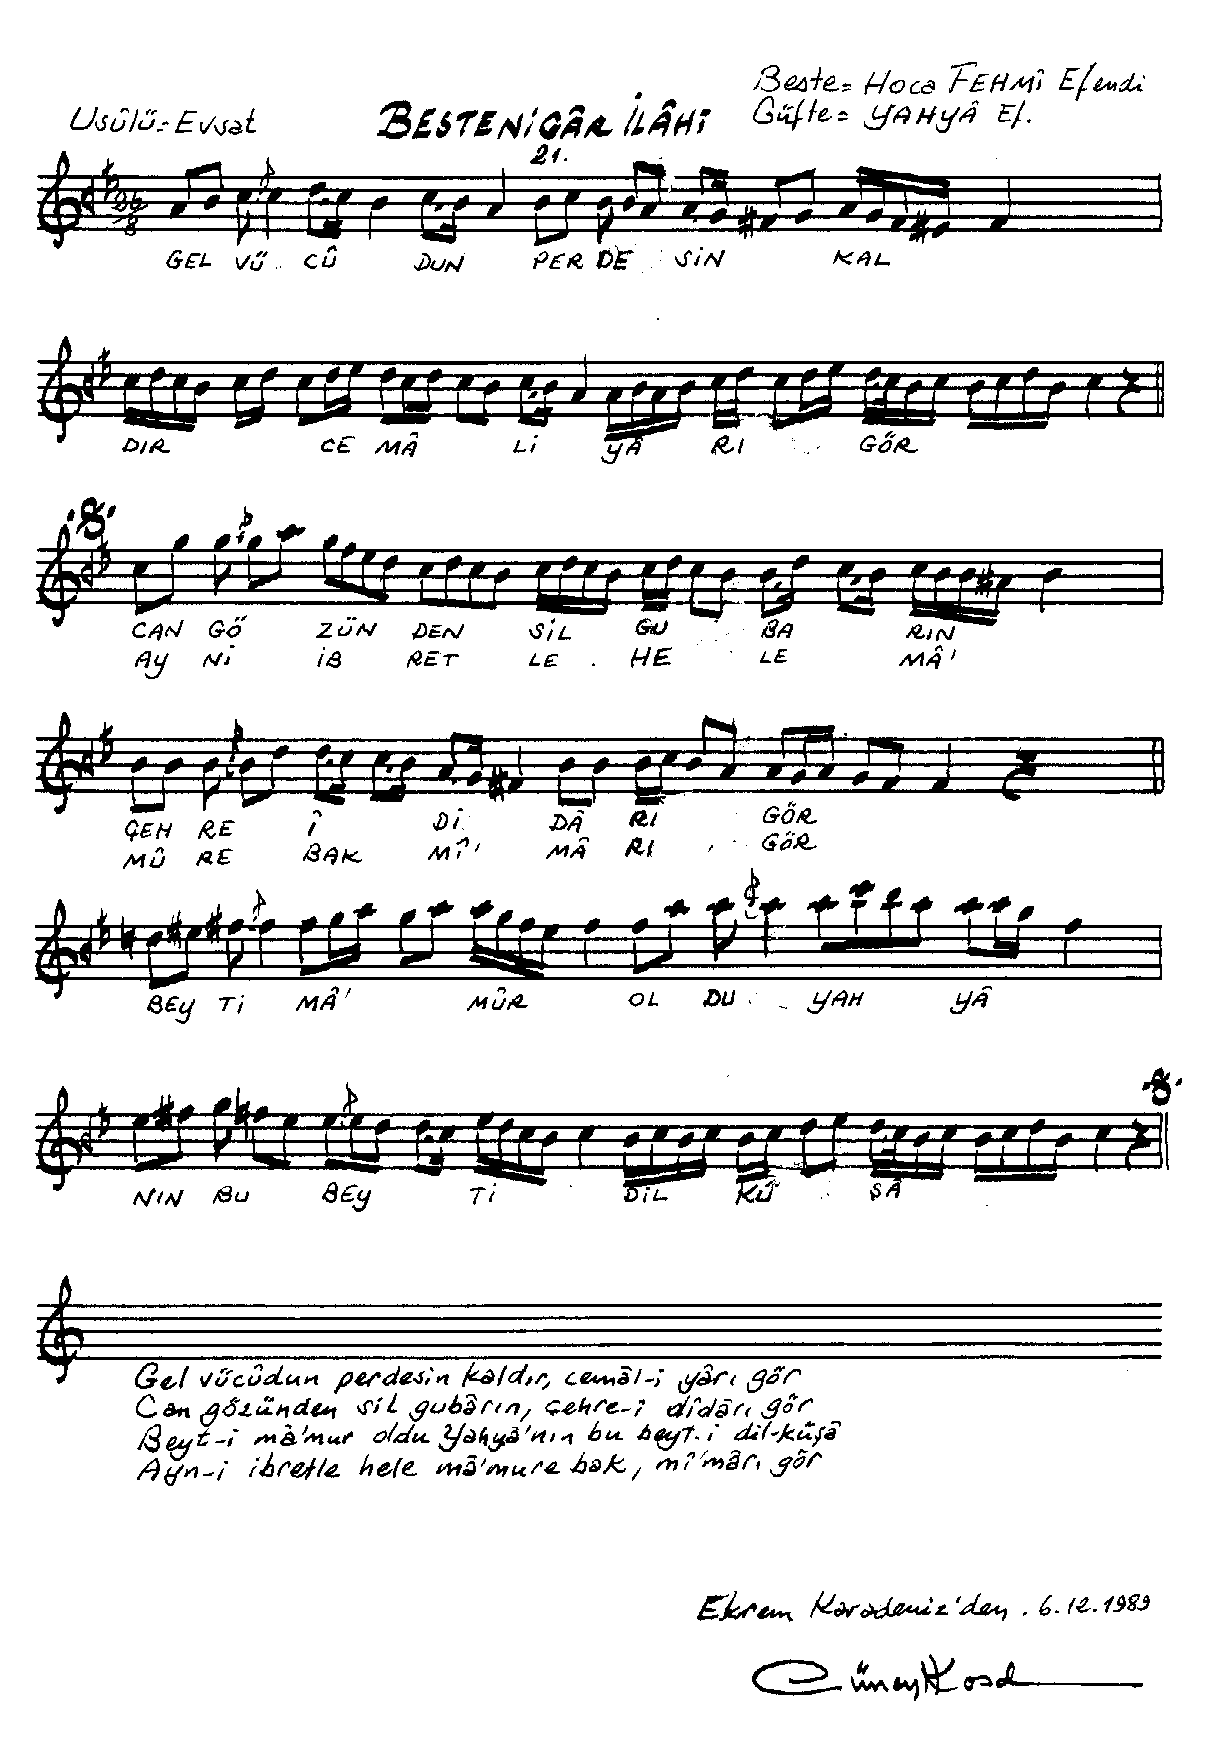 Beste= Hoca FEHMÎ Efendi
Usûlü= Evsat BESTENİGÂR İLÂHİ Güfte= YAHYÂ Ef.
21.
26/8
GEL VÜ CÛ DUN PER DE SİN KAL
DIR CE MÂ Lİ YÂ RI GÖR
CAN GÖ ZÜN DEN SİL GU BA RIN
AY Nİ İB RET LE HE LE MÂ'
ÇEH RE Î Dİ DÂ RI GÖR
MÛ RE BAK MÎ' MÂ RI GÖR
BEY Tİ MÂ' MÛR OL DU YAH YÂ
NIN BU BEY Tİ DİL KÜ ŞÂ
Gel vücûdun perdesin kaldır, cemâl-i yârı gör
Can gözünden sil gubârın, çehre-i dîdârı gör
Beyt-i mâ'mur oldu Yahyâ'nın bu beyt-i dil-küşâ
Ayn-i ibretle hele mâ'mure bak, mî'mârı gör
Ekrem Karadeniz'den. 6.12.1989
Cüneyt Kosal